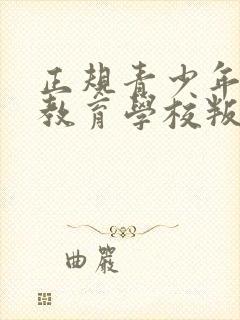 正規青少年
教育學校叛
曲嚴